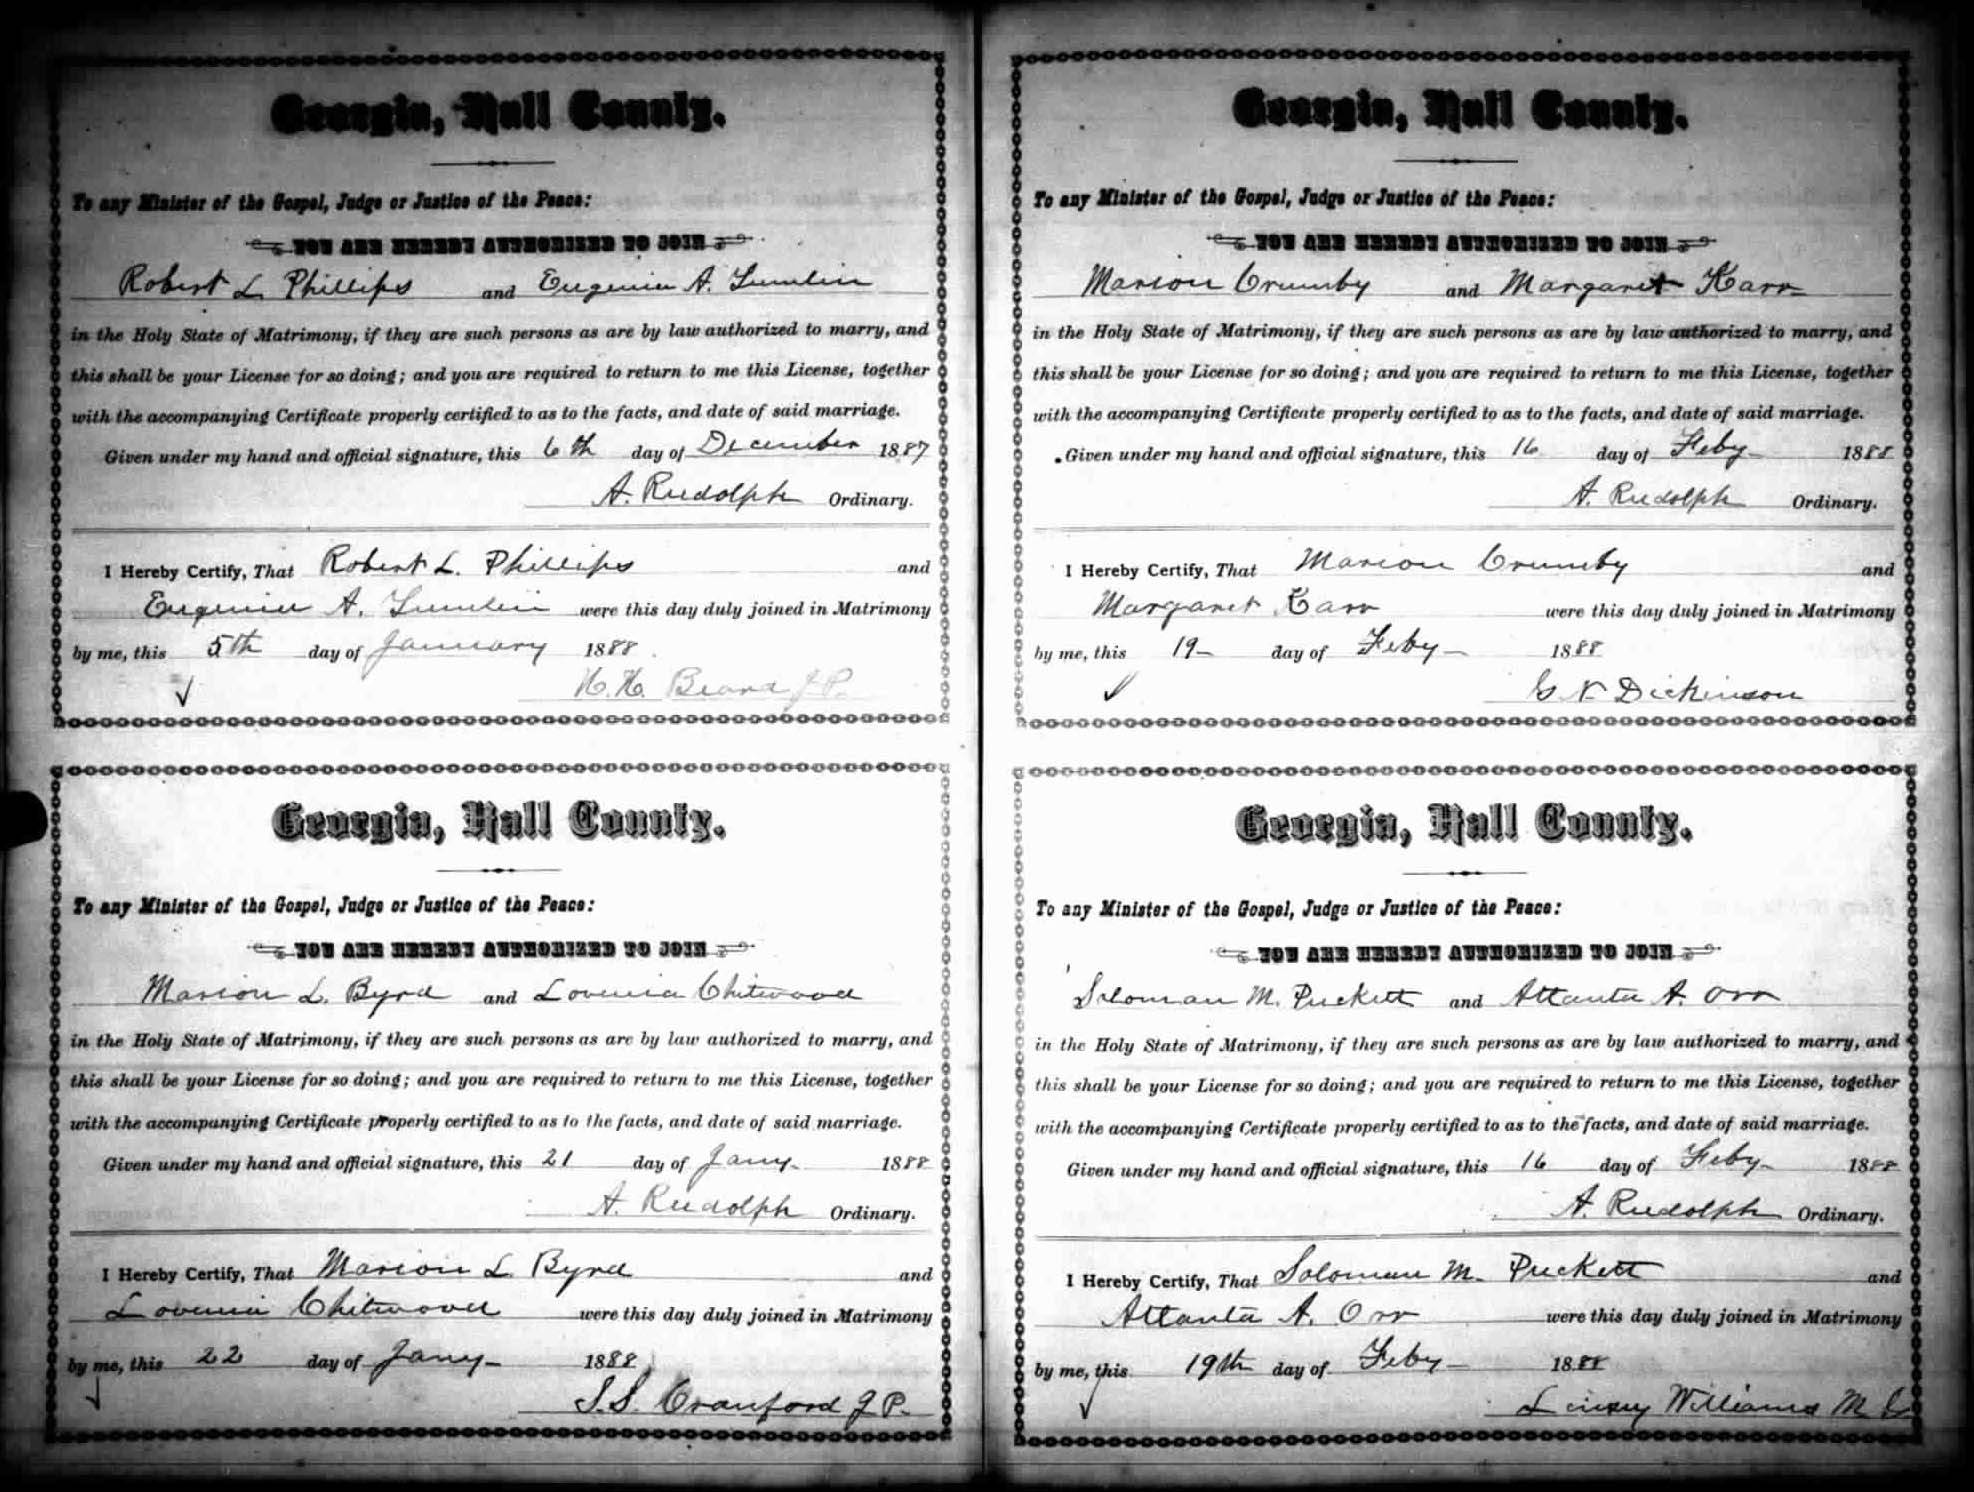 Georgia, Hall County.
To any Minister of the Gospel, Judge or Justice of the Peace:
YOU ARE HEREBY AUTHORIZED TO JOIN
Robert L. Phillips and Eugenia A. Tumlin
in the Holy State of Matrimony, if they are such persons as are by law authorized to marry, and
this shall be your License for so doing; and you are required to return to me this License, together
with the accompanying Certificate properly certified to as to the facts, and date of said marriage.
Given under my hand and official signature, this 6th day of December 1887
A. Rudolph Ordinary.
I Hereby Certify, That Robert L. Phillips and
Eugenia A. Tumlin were this day duly joined in Matrimony
by me, this 5th day of January 1888
H. H. Beard J.P.
Georgia, Hall County.
To any Minister of the Gospel, Judge or Justice of the Peace:
YOU ARE HEREBY AUTHORIZED TO JOIN
Marion L. Byrd and Lovenia Chitwood
in the Holy State of Matrimony, if they are such persons as are by law authorized to marry, and
this shall be your License for so doing; and you are required to return to me this License, together
with the accompanying Certificate properly certified to as to the facts, and date of said marriage.
Given under my hand and official signature, this 21 day of Jany. 1888
A. Rudolph Ordinary.
I Hereby Certify, That Marion L. Byrd and
Lovenia Chitwood were this day duly joined in Matrimony
by me, this 22 day of Jany 1888
S. S. Cranford J P.
Georgia, Hall County.
To any Minister of the Gospel, Judge or Justice of the Peace:
YOU ARE HEREBY AUTHORIZED TO JOIN
Marion Crumby and Margaret Karr
in the Holy State of Matrimony, if they are such persons as are by law authorized to marry, and
this shall be your License for so doing; and you are required to return to me this License, together
with the accompanying Certificate properly certified to as to the facts, and date of said marriage.
Given under my hand and official signature, this 16 day of Feby 1888
A. Rudolph Ordinary.
I Hereby Certify, That Marion Crumby and
Margaret Karr were this day duly joined in Matrimony
by me, this 19 day of Feby 1888
N Dickinson
Georgia, Hall County.
To any Minister of the Gospel, Judge or Justice of the Peace:
YOU ARE HEREBY AUTHORIZED TO JOIN
Soloman M. Puckett and Attanta A. Orr
in the Holy State of Matrimony, if they are such persons as are by law authorized to marry, and
this shall be your License for so doing; and you are required to return to me this License, together
with the accompanying Certificate properly certified to as to the facts, and date of said marriage.
Given under my hand and official signature, this 16 day of Feby 1888
A. Rudolph Ordinary.
I Hereby Certify, That Soloman M. Puckett and
Attanta A. Orr were this day duly joined in Matrimony
by me, this 19th day of Feby 1888
Linsey Williams M